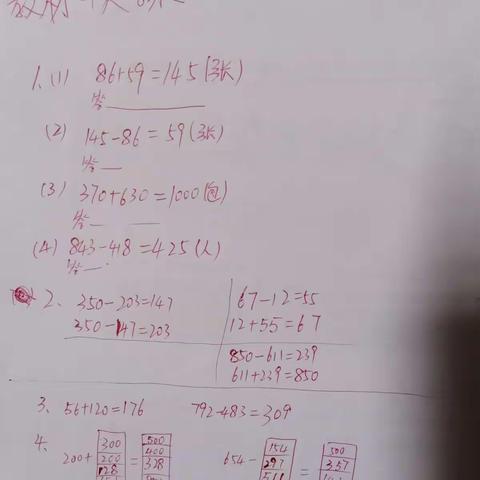 1、(1) 86+59=145(张)
答
(2) 145-86=59(张)
答
(3) 370+630=1000(包)
答
(4) 843-418=425(人)
答
2、350-203=147
350-147=203
67-12=55
12+55=67
850-611=239
611+239=850
3、56+120=176 792-483=309
4、
200+ 300 = 500
200 400
128 328
654- 154 = 500
297 357